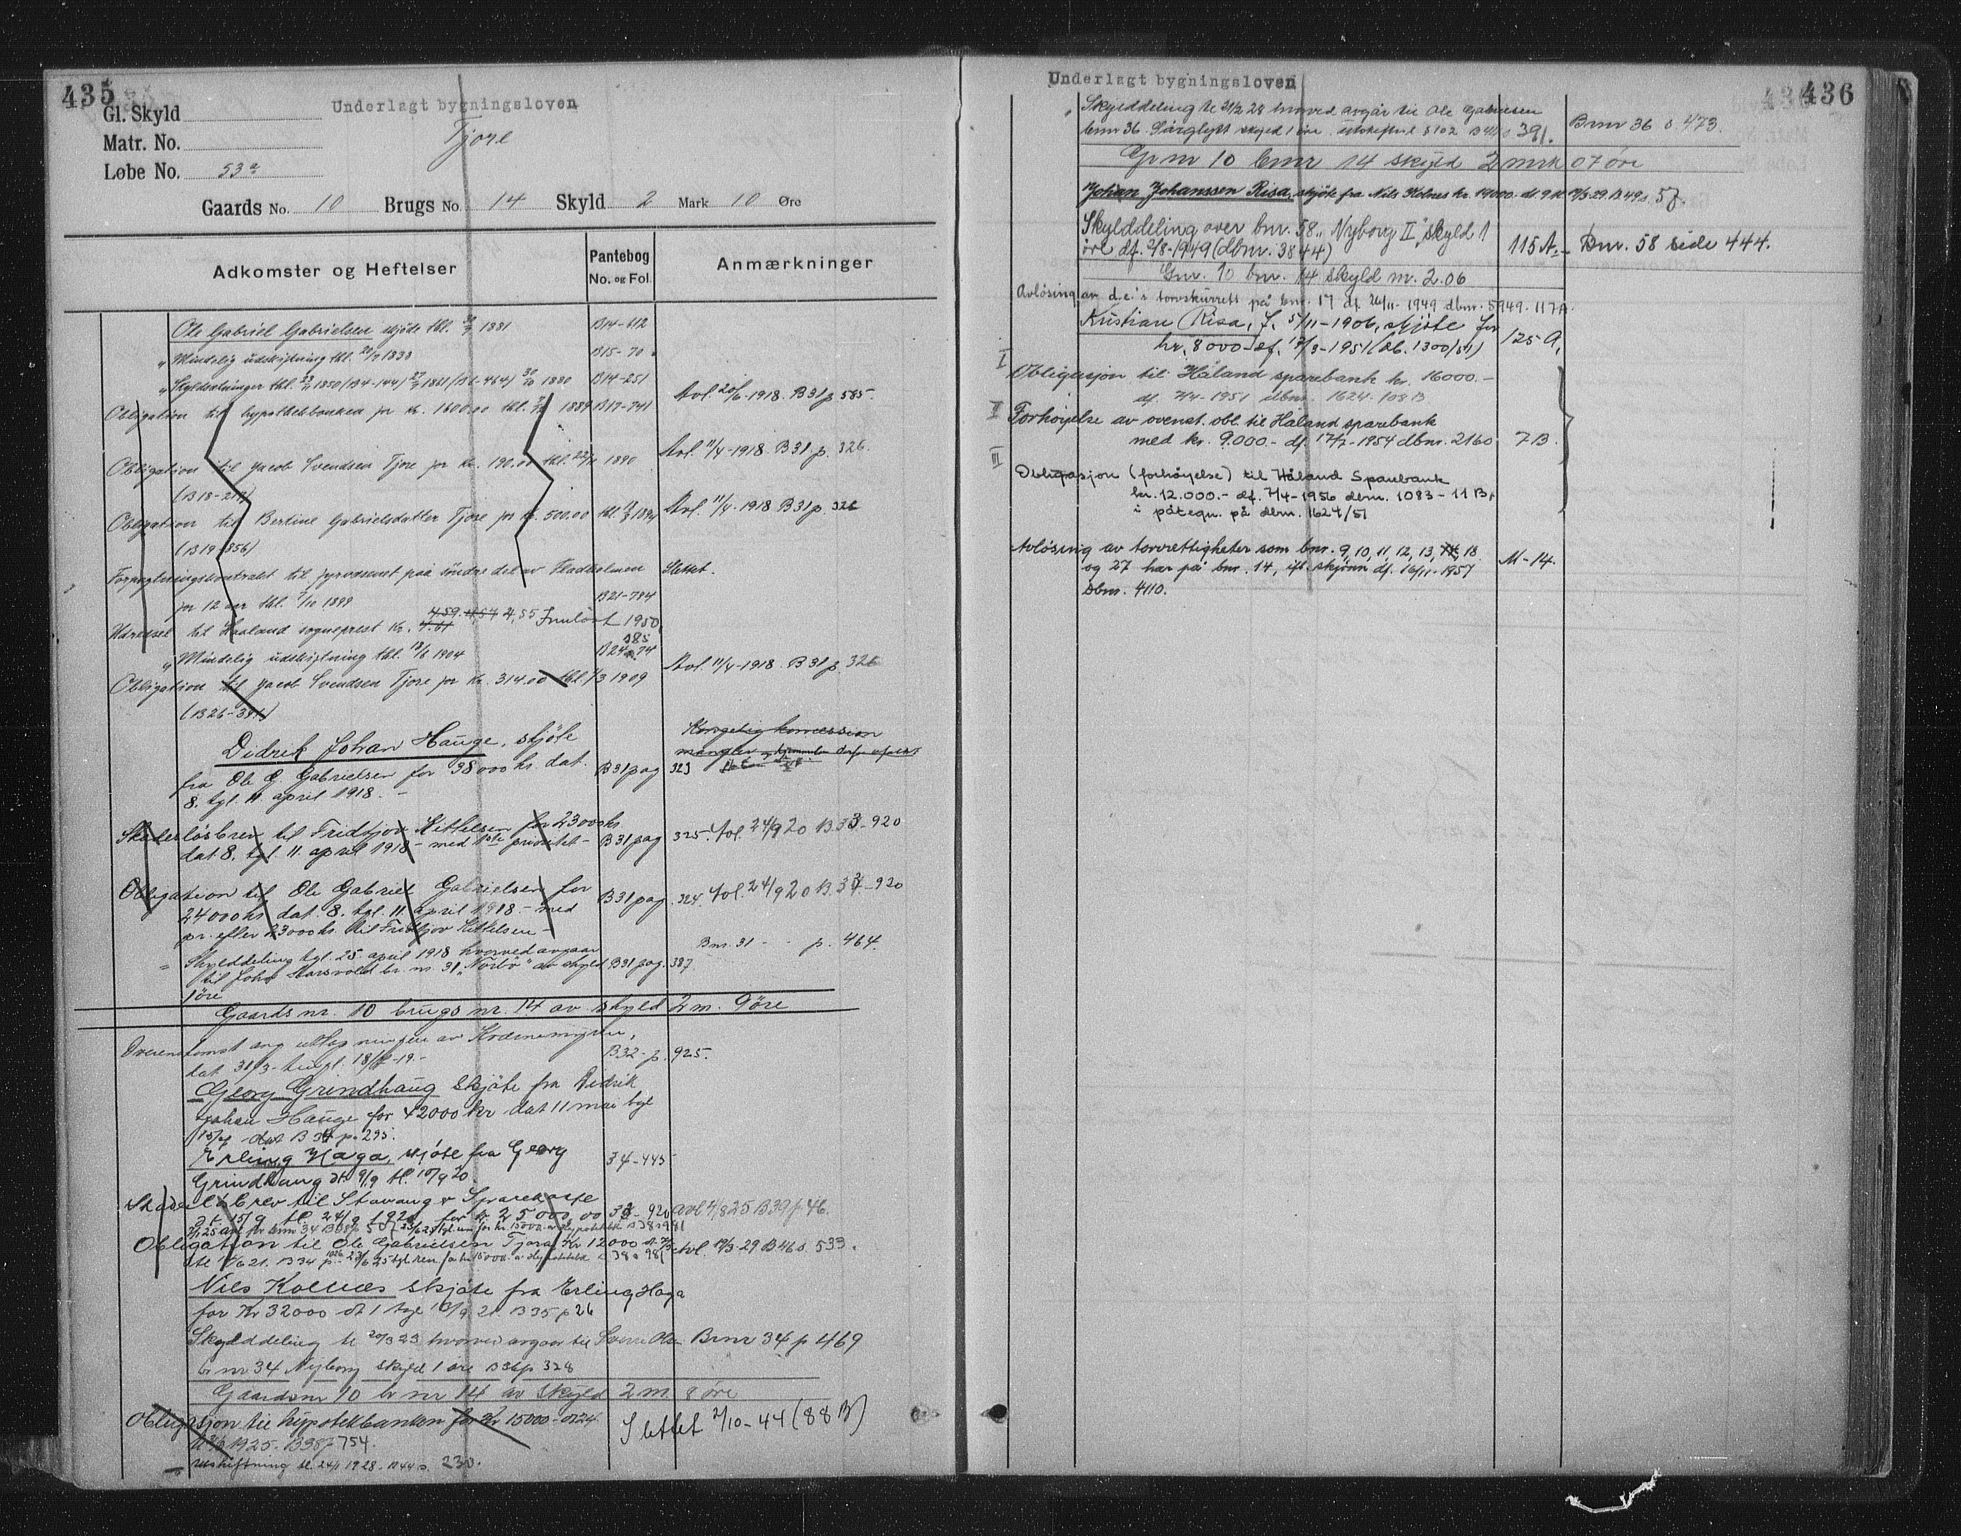 435
Underlagt bygningsloven
Gl. Skyld
Matr. No. Tjore
Løbe No. 53a
Gaards No. 10 Brugs No. 14 Skyld 2 Mark 10 Øre
Adkomster og Heftelser
Pantebog
No. og Fol.
Anmærkninger
Ole Gabriel Gabrielsen skjøde tbl. 1881 B14-612
" Mindelig udskiftning tbl. B15-70
" Skyldsetninger tbl. 1850 (B4-144) 1861 (B6-464) 1880 B14-251
Obligation til hypothekbanken for Kr. 1600.00 tbl. 1889 B17-741 Avl. 20/6-1918. B31 p 585.
Obligation til Jacob Svendsen Tjore for Kr. 190.00 tbl. 1890 Avl. 11/4-1918 B31 p. 326.
(B18-217)
Obligation til Bertine Gabrielsdatter Tjore for Kr. 500.00 tbl. 1894 Avl. 11/4-1918 B31 p. 326
(B19-356)
Forpagtningskontrakt til fyrvæsenet paa søndre del av Fladholmen Slettet.
for 12 aar tbl. 1/10 1899 B21-784
Udredsel til Haaland sogneprest Kr. 4.61 4.59 4.57 4,55 Innløst 1950
" Mindelig udskiftning tbl. 1904 B24-74
Obligation til Jacob Svendsen Tjore for Kr. 314.00 tbl. 1/3 1909 Avl. 11/4-1918 B31 p. 326
(B26-391)
Didrik Johan Hauge, skjøte
fra Ole G. Gabrielsen for 38000 kr. dat. B31 pag 323
8. tgl. 11 april 1918. -
Kongelig koncession
mangler
Skadesløsbrev til Fridtjov Kittelsen for 23000 kr B31 pag 325. Avl. 24/9 20 B.33-920
dat 8. tgl. 11. april 1918 - med 1ste prioritet -
Obligation til Ole Gabriel Gabrielsen for B31 pag. 324. Avl. 24/9 20 B.33-920
24000 kr dat. 8. tgl. 11. april 1918. - med
pr. efter 23000 kr til Fridtjov Kittelsen -
" Skylddeling tgl. 25. april 1918 hvorved avgaar Bnr. 31 - - p. 464.
til John br. nr. 31 "Nortbø" av skyld B31 pag. 387.
1 øre
Gaards nr. 10 brugs nr. 14 av skyld 2 m. 9 øre
Overenskomst ang av
dat 31/3 - tingl. 18/ -19. - B32- p. 925.
Georg Grindhaug skjøte fra Didrik
Johan Hauge for 42000 kr dat 11 mai tgl
B 34 p. 295.
Erling Haga, skjøte fra Georg 34-445
Grindhaug dt. 9/9 tl. 10/9 20
Skadesløsbrev til Stavanger Sparekasse
dt. 15/9 tl. 24/9 1920 for kr 25000,00 33-920 Avl 4/8 25 B39 p 46.
Obligation til Ole Gabrielsen Tjora Kr 12000 Avl. 19/3-29 B46 s. 533.
Nils Kolnes skjøte fra Erling Haga
for Kr 32000 dt 1 tgl 10/9 21 B35 p 26
Skylddeling tl 20/3 23 hvorved avgaar til Sverre Olsen Brnr 34 p 469
br nr 34 Nyborg skyld 1 øre B36 p 328
Gaardsnr 10 br nr 14 av skyld 2 m 8 øre
Obligasjon til hypotekbanken for Kr 15000- Slettet 2/10-44 (88 B)
1925. B38 p 754.
" Utskiftning tl. 24/1 1928. B44 s. 230.
436
Underlagt bygningsloven
" Skylddeling tl 21/2 28 hvorved avgår til Ole Gabrielsen
bnr 36 skyld 1 øre B44 s 391. Brnr 36 s 473.
Gr nr 10 bnr 14 skyld 2 mrk 07 øre
Johan Johanssen Risa, skjøte fra Nils Kolnes kr. 19000. dt. 9 tl. 19/3-29. B.49 s. 57.
Skylddeling over bnr. 58 "Nyborg II", skyld 1
øre df. 2/8-1949 (dbnr. 3844) 115 A. - Bnr. 58 side 444.
Gnr. 10 bnr. 14 skyld m. 2.06
Avløsing av d.e.'s torvskurrett på bnr. 17 df. 26/11-1949 dbnr. 5949. 117 A.
Kristian Risa, f. 5/11-1906, skjøte for
kr. 8000 - df. 17/3-1951 (db. 1300/51) 125 A,
I Obligasjon til Håland sparebank kr. 16000.-
df. 7/4-1951 dbnr. 1624 - 108 B
II Forhøyelse av ovenst. obl. til Håland sparebank
med kr. 9.000.- df. 17/7-1954 dbnr. 2160 7 B.
III Obligasjon (forhøyelse) til Håland Sparebank
kr. 12.000.- df. 7/4-1956 dbnr. 1083 - 11 B,
i påtegn. på dbnr. 1624/51
Avløsing av torvrettigheter som bnr. 9, 10, 11, 12, 13, 14, 18 M-14.
og 27 har på bnr. 14, ifl. skjønn df. 16/11-1957
Dbnr. 4110.